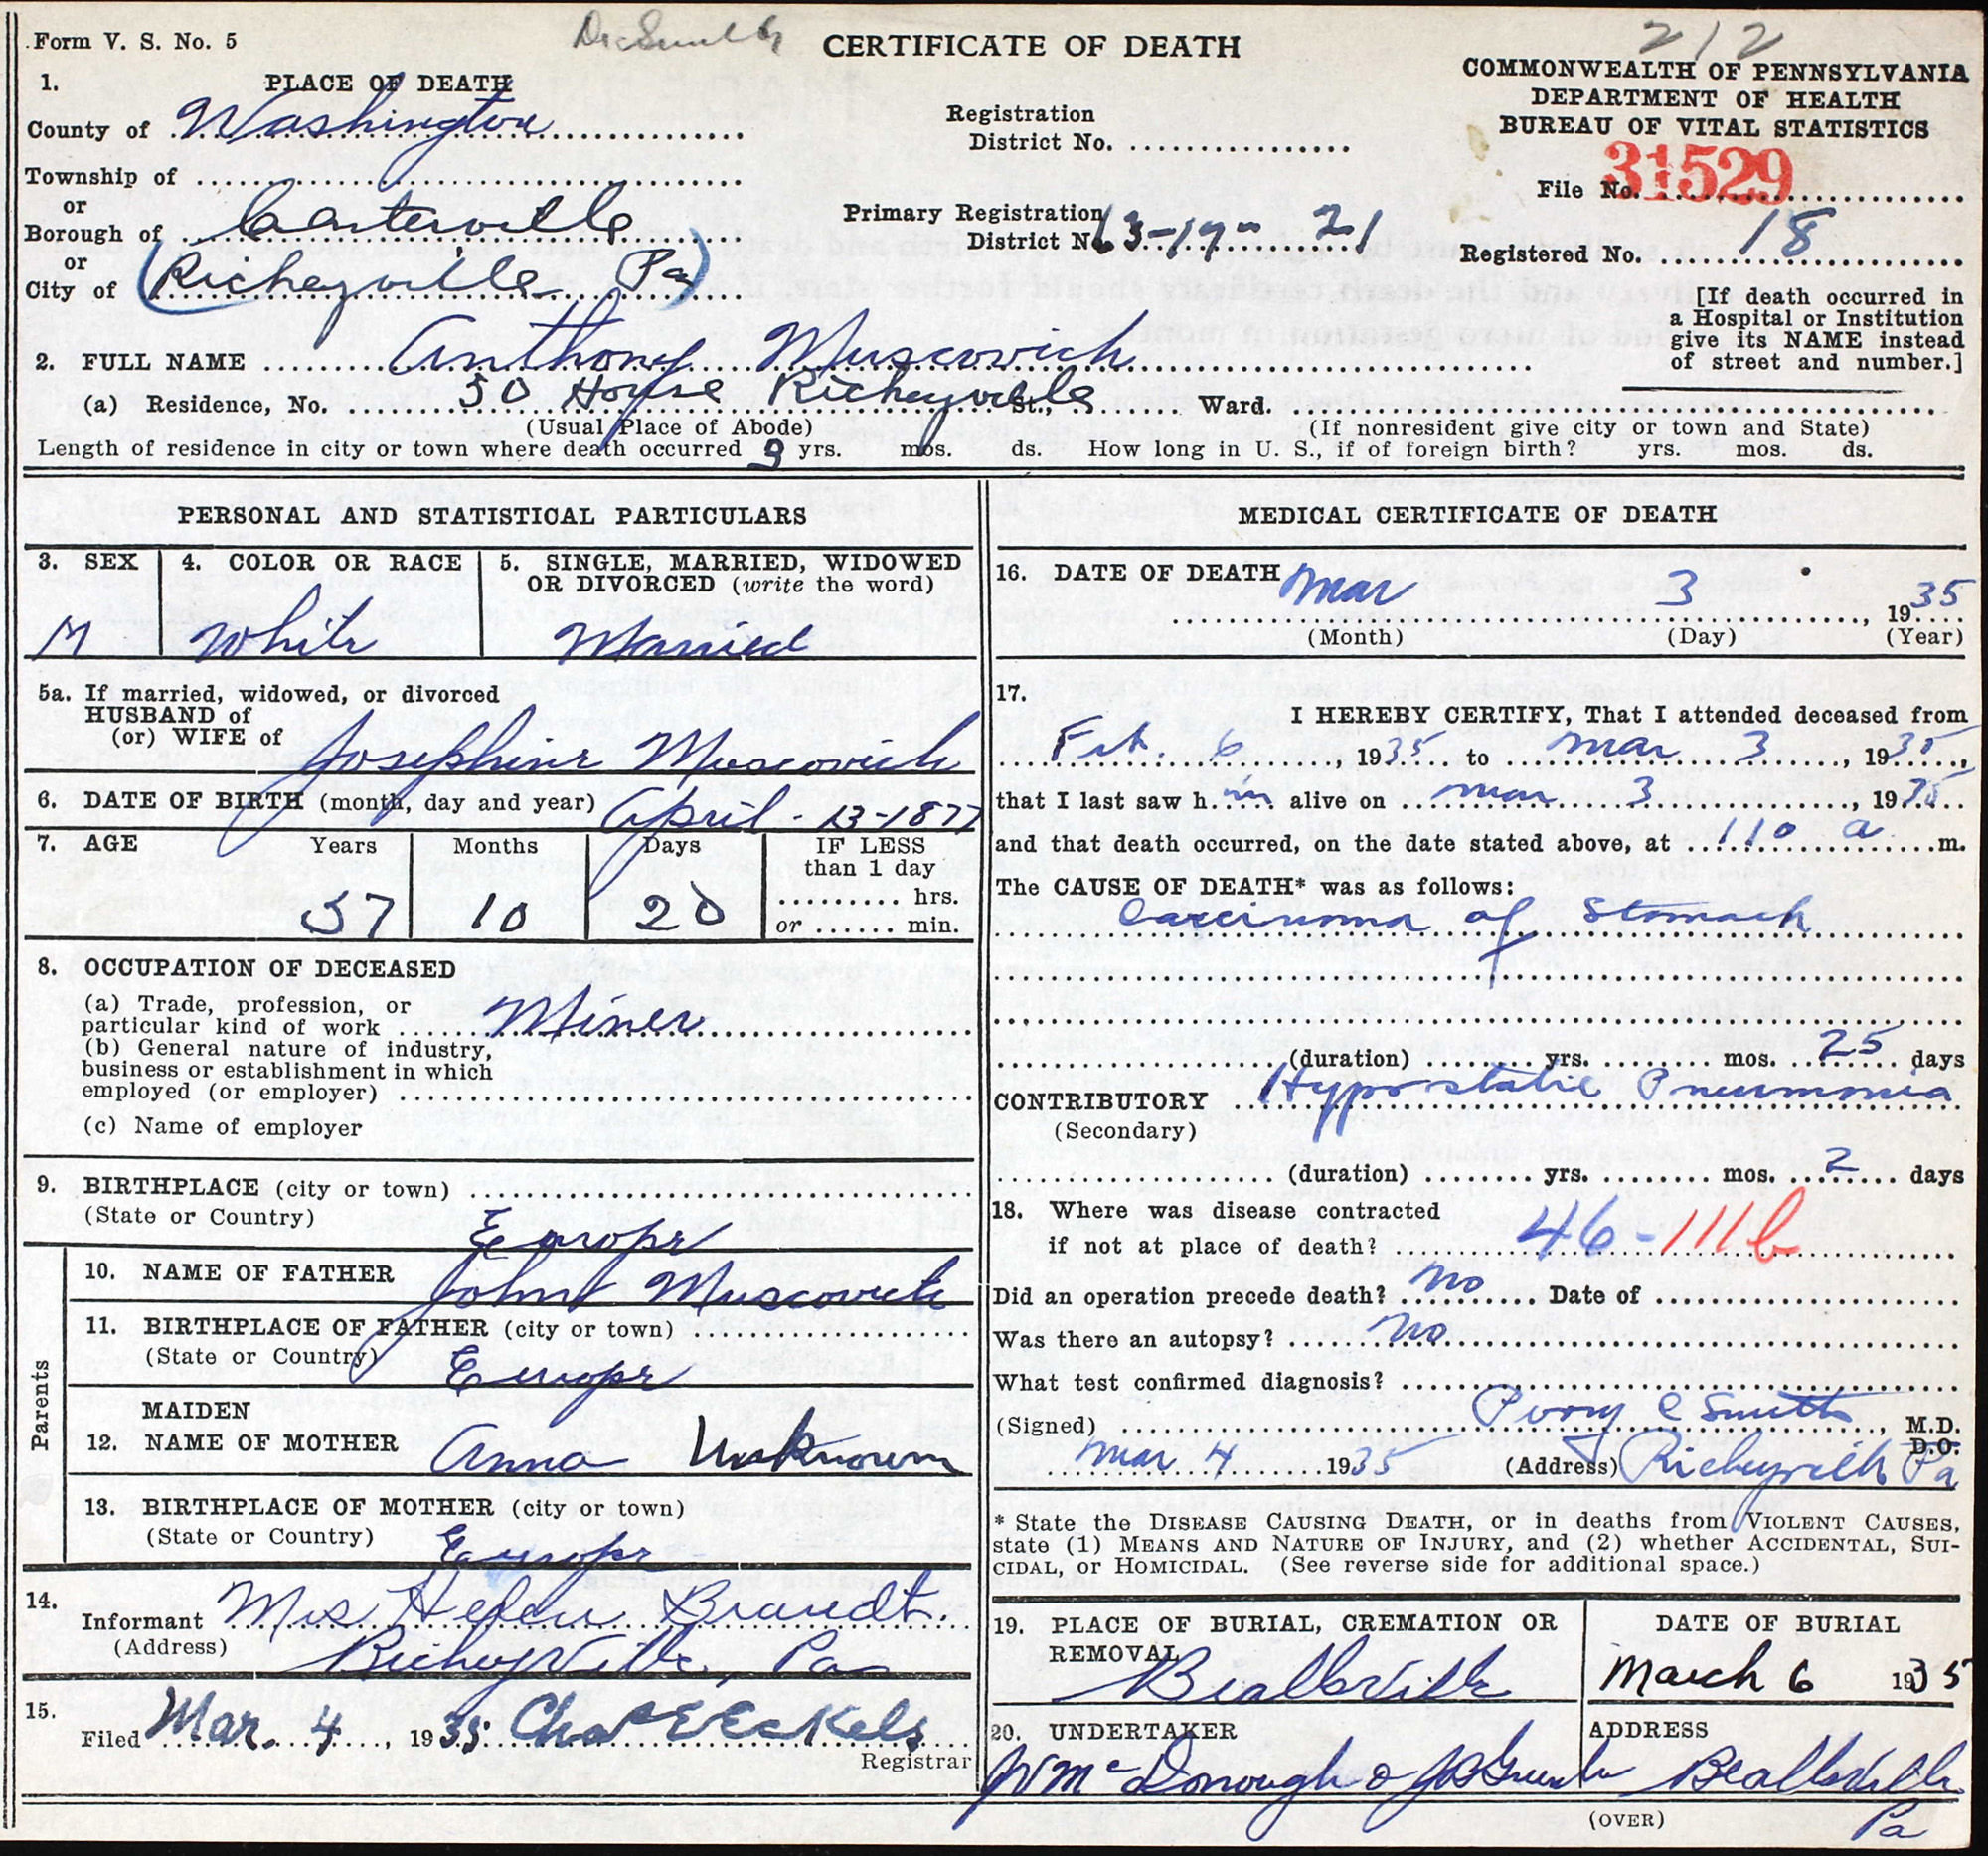 Form V. S. No. 5
Dr. Smith
CERTIFICATE OF DEATH
212
COMMONWEALTH OF PENNSYLVANIA
DEPARTMENT OF HEALTH
BUREAU OF VITAL STATISTICS
1. PLACE OF DEATH
County of Washington
Registration
District No.
File No. 31529
Township of
or
Borough of Centerville
Primary Registration
District No. 63-17-21
Registered No. 18
or
City of (Richeyville Pa)
[If death occurred in
a Hospital or Institution
give its NAME instead
of street and number.]
2. FULL NAME Anthony Muscovich
(a) Residence, No. 50 House Richeyville St., Ward.
(Usual Place of Abode) (If nonresident give city or town and State)
Length of residence in city or town where death occurred 9 yrs. mos. ds. How long in U. S., if of foreign birth? yrs. mos. ds.
PERSONAL AND STATISTICAL PARTICULARS
3. SEX 4. COLOR OR RACE 5. SINGLE, MARRIED, WIDOWED
OR DIVORCED (write the word)
M White Married
5a. If married, widowed, or divorced
HUSBAND of
(or) WIFE of Josephine Muscovich
6. DATE OF BIRTH (month, day and year) April - 13-1877
7. AGE Years Months Days IF LESS
than 1 day
hrs.
57 10 20 or min.
8. OCCUPATION OF DECEASED
(a) Trade, profession, or
particular kind of work Miner
(b) General nature of industry,
business or establishment in which
employed (or employer)
(c) Name of employer
9. BIRTHPLACE (city or town)
(State or Country) Europe
Parents
10. NAME OF FATHER John Muscovich
11. BIRTHPLACE OF FATHER (city or town)
(State or Country) Europe
MAIDEN
12. NAME OF MOTHER Anna Unknown
13. BIRTHPLACE OF MOTHER (city or town)
(State or Country) Europe
14. Informant Mrs Helen Brandt.
(Address) Richeyville, Pa
15. Filed Mar. 4, 1935 Chas E Eckels
Registrar
MEDICAL CERTIFICATE OF DEATH
16. DATE OF DEATH Mar 3, 1935
(Month) (Day) (Year)
17.
I HEREBY CERTIFY, That I attended deceased from
Feb. 6, 1935 to Mar 3, 1935,
that I last saw h im alive on Mar 3, 1935
and that death occurred, on the date stated above, at 110 a m.
The CAUSE OF DEATH* was as follows:
Carcinoma of Stomach
(duration) yrs. mos. 25 days
CONTRIBUTORY Hypostatic Pneumonia
(Secondary)
(duration) yrs. mos. 2 days
18. Where was disease contracted
if not at place of death? 46-111b
Did an operation precede death? No Date of
Was there an autopsy? No
What test confirmed diagnosis?
(Signed) Perry C Smith, M.D.
D.O.
Mar 4 1935 (Address) Richeyville Pa
* State the DISEASE CAUSING DEATH, or in deaths from VIOLENT CAUSES,
state (1) MEANS AND NATURE OF INJURY, and (2) whether ACCIDENTAL, SUI-
CIDAL, or HOMICIDAL. (See reverse side for additional space.)
19. PLACE OF BURIAL, CREMATION OR DATE OF BURIAL
REMOVAL
Beallsville March 6 1935
20. UNDERTAKER ADDRESS
McDonough Beallsville
Pa
(OVER)